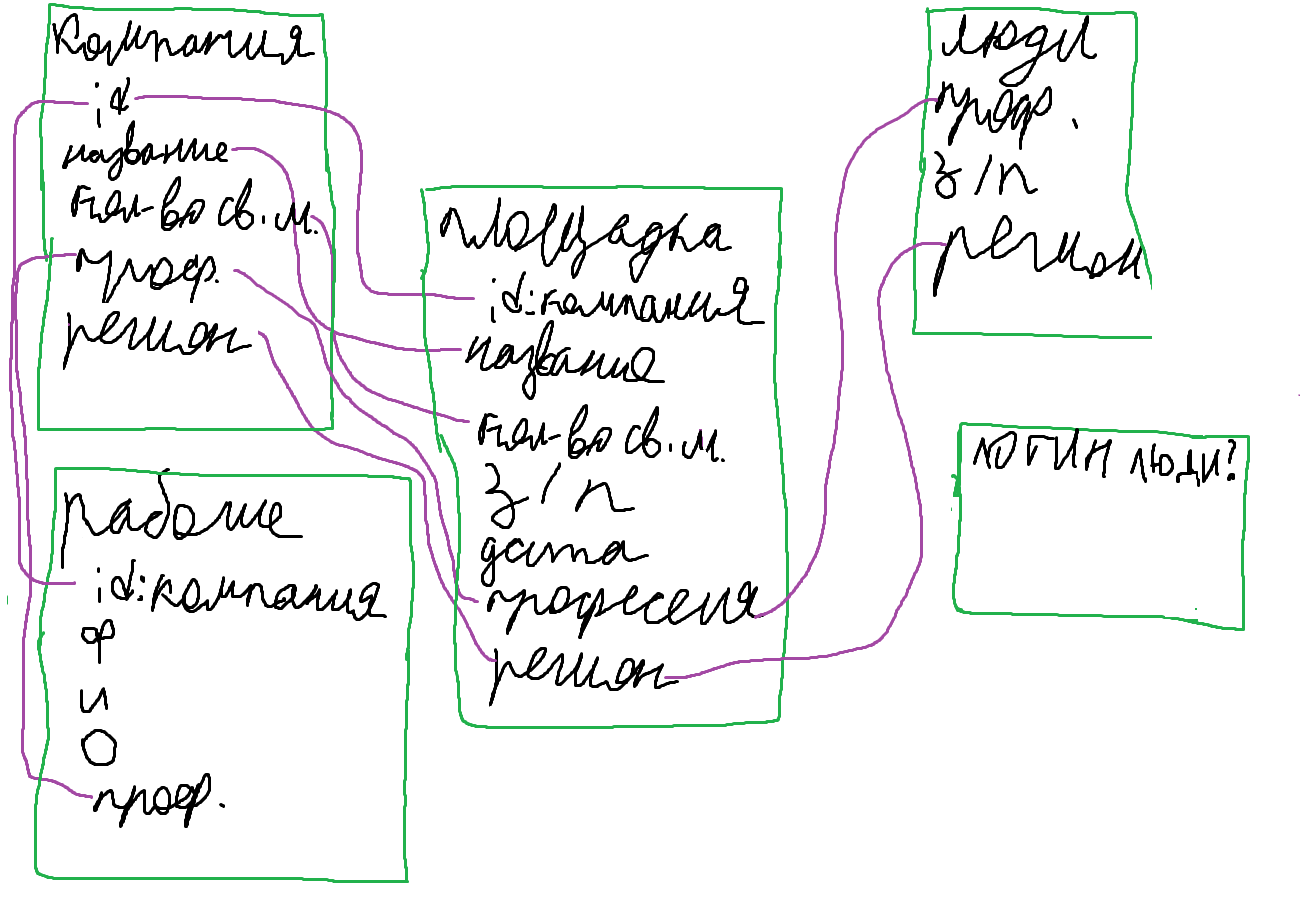 компания
id
название
кол-во св.м.
проф.
регион
рабочие
id:компания
Ф
И
О
проф.
площадка
id:компания
название
кол-во св.м.
з/п
дата
профессия
регион
люди
проф.
з/п
регион
ЛОГИН ЛЮДИ?